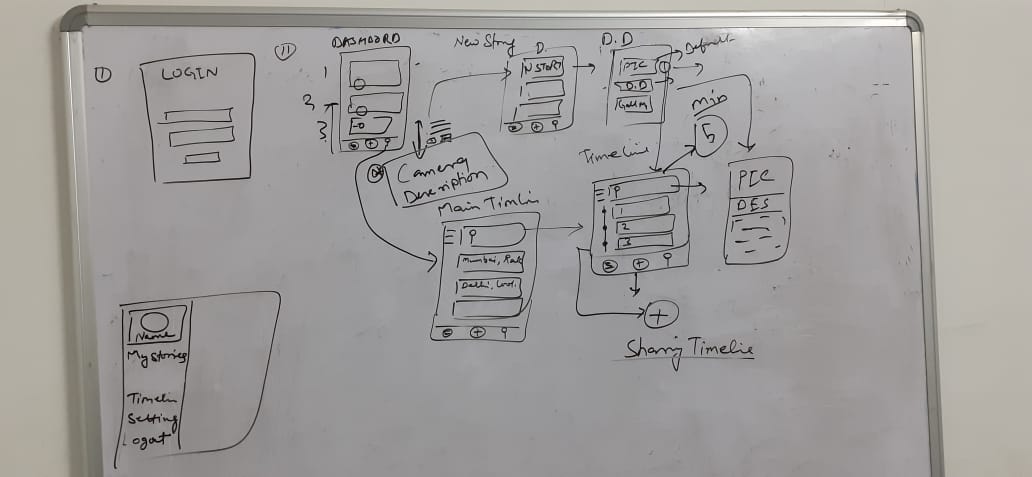 I
LOGIN
II
DASHBORD
1
2
3
New Story
D.
N STORY
D.D
PIC
D.D
Default
Camera
Description
Main Timlin
Mumbai,
Delhi,
Timeline
1
2
3
min
5
PIC
DES
Sharing Timeline
Name
My Stories
Timelin
Setting
Logout